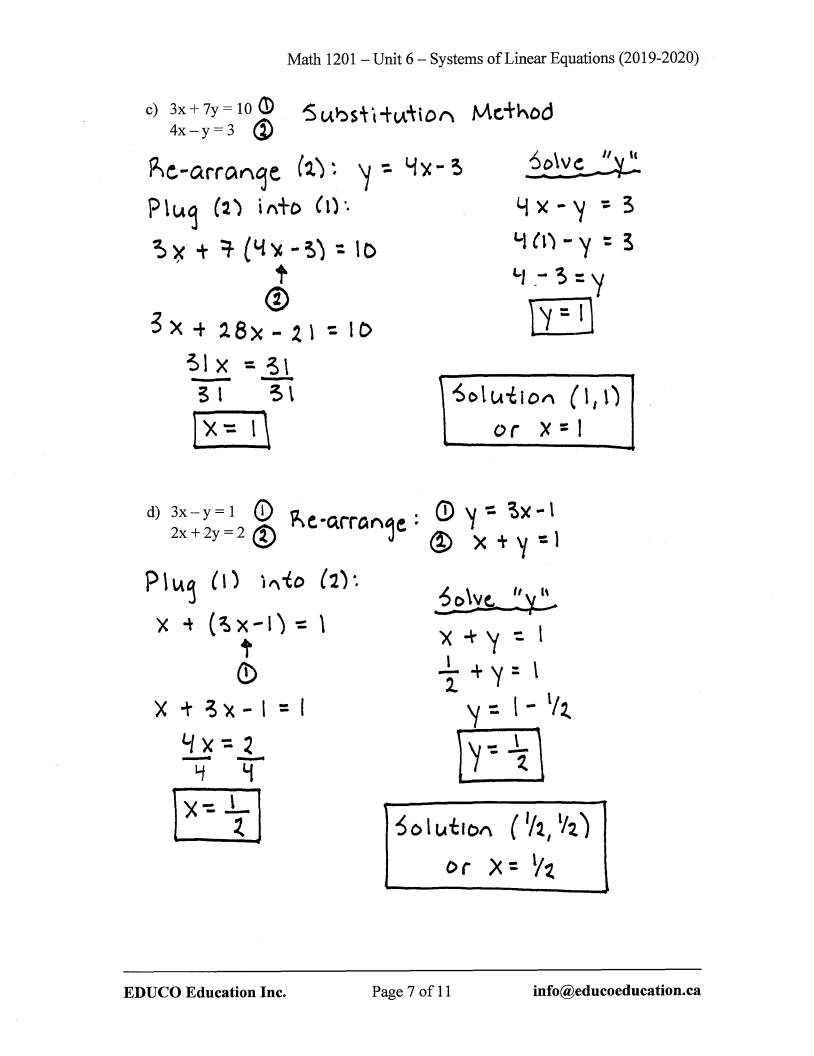 Math 1201 – Unit 6 – Systems of Linear Equations (2019-2020)
c) 3x + 7y = 10 ① Substitution Method
4x – y = 3 ②
Re-arrange (2): y = 4x - 3
Plug (2) into (1):
3x + 7 (4x - 3) = 10
↑
②
3x + 28x - 21 = 10
31x = 31
31 31
x = 1
Solve "y"
4x - y = 3
4(1) - y = 3
4 - 3 = y
y = 1
Solution (1,1)
or x = 1
d) 3x – y = 1 ① Re-arrange: ① y = 3x - 1
2x + 2y = 2 ② ② x + y = 1
Plug (1) into (2):
x + (3x-1) = 1
↑
①
x + 3x - 1 = 1
4x = 2
4 4
x = 1/2
Solve "y"
x + y = 1
1/2 + y = 1
y = 1 - 1/2
y = 1/2
Solution (1/2, 1/2)
or x = 1/2
EDUCO Education Inc. Page 7 of 11 info@educoeducation.ca